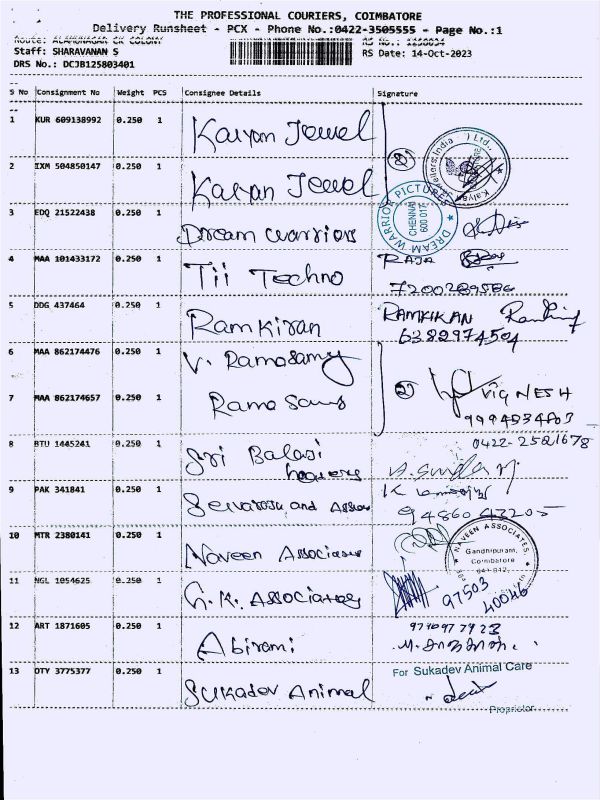 THE PROFESSIONAL COURIERS, COIMBATORE
Delivery Runsheet - PCX - Phone No.:0422-3505555 - Page No.:1
Staff: SHARAVANAN S
RS Date: 14-Oct-2023
DRS No.: DCJB125803401
S No Consignment No Weight PCS Consignee Details Signature
1 KUR 609138992 0.250 1 Kalyan Jewel
2 IXM 504850147 0.250 1 Kalyan Jewel
3 EDQ 21522438 0.250 1 Dream warriors
DREAM WARRIOR PICTURES
CHENNAI
600 017
4 MAA 101433172 0.250 1 Tii Techno RAJA
7200289586
5 DDG 437464 0.250 1 Ramkiran RAMKIKAN
6382974504
6 MAA 862174476 0.250 1 V. Ramasamy
7 MAA 862174657 0.250 1 Rama Sams VIGNESH
0422-2521678
8 BTU 1445241 0.250 1 Sri Balaji
9 PAK 341841 0.250 1 and
9486043205
10 MTR 2380141 0.250 1 Naveen Associates
NAVEEN ASSOCIATES
Gandhipuram,
Coimbatore
641 012
11 NGL 1054625 0.250 1 G.K. Associates
97503
40046
12 ART 1871605 0.250 1 Abirami
9740977923
13 OTY 3775377 0.250 1 Sukadev Animal
For Sukadev Animal Care
Proprietor